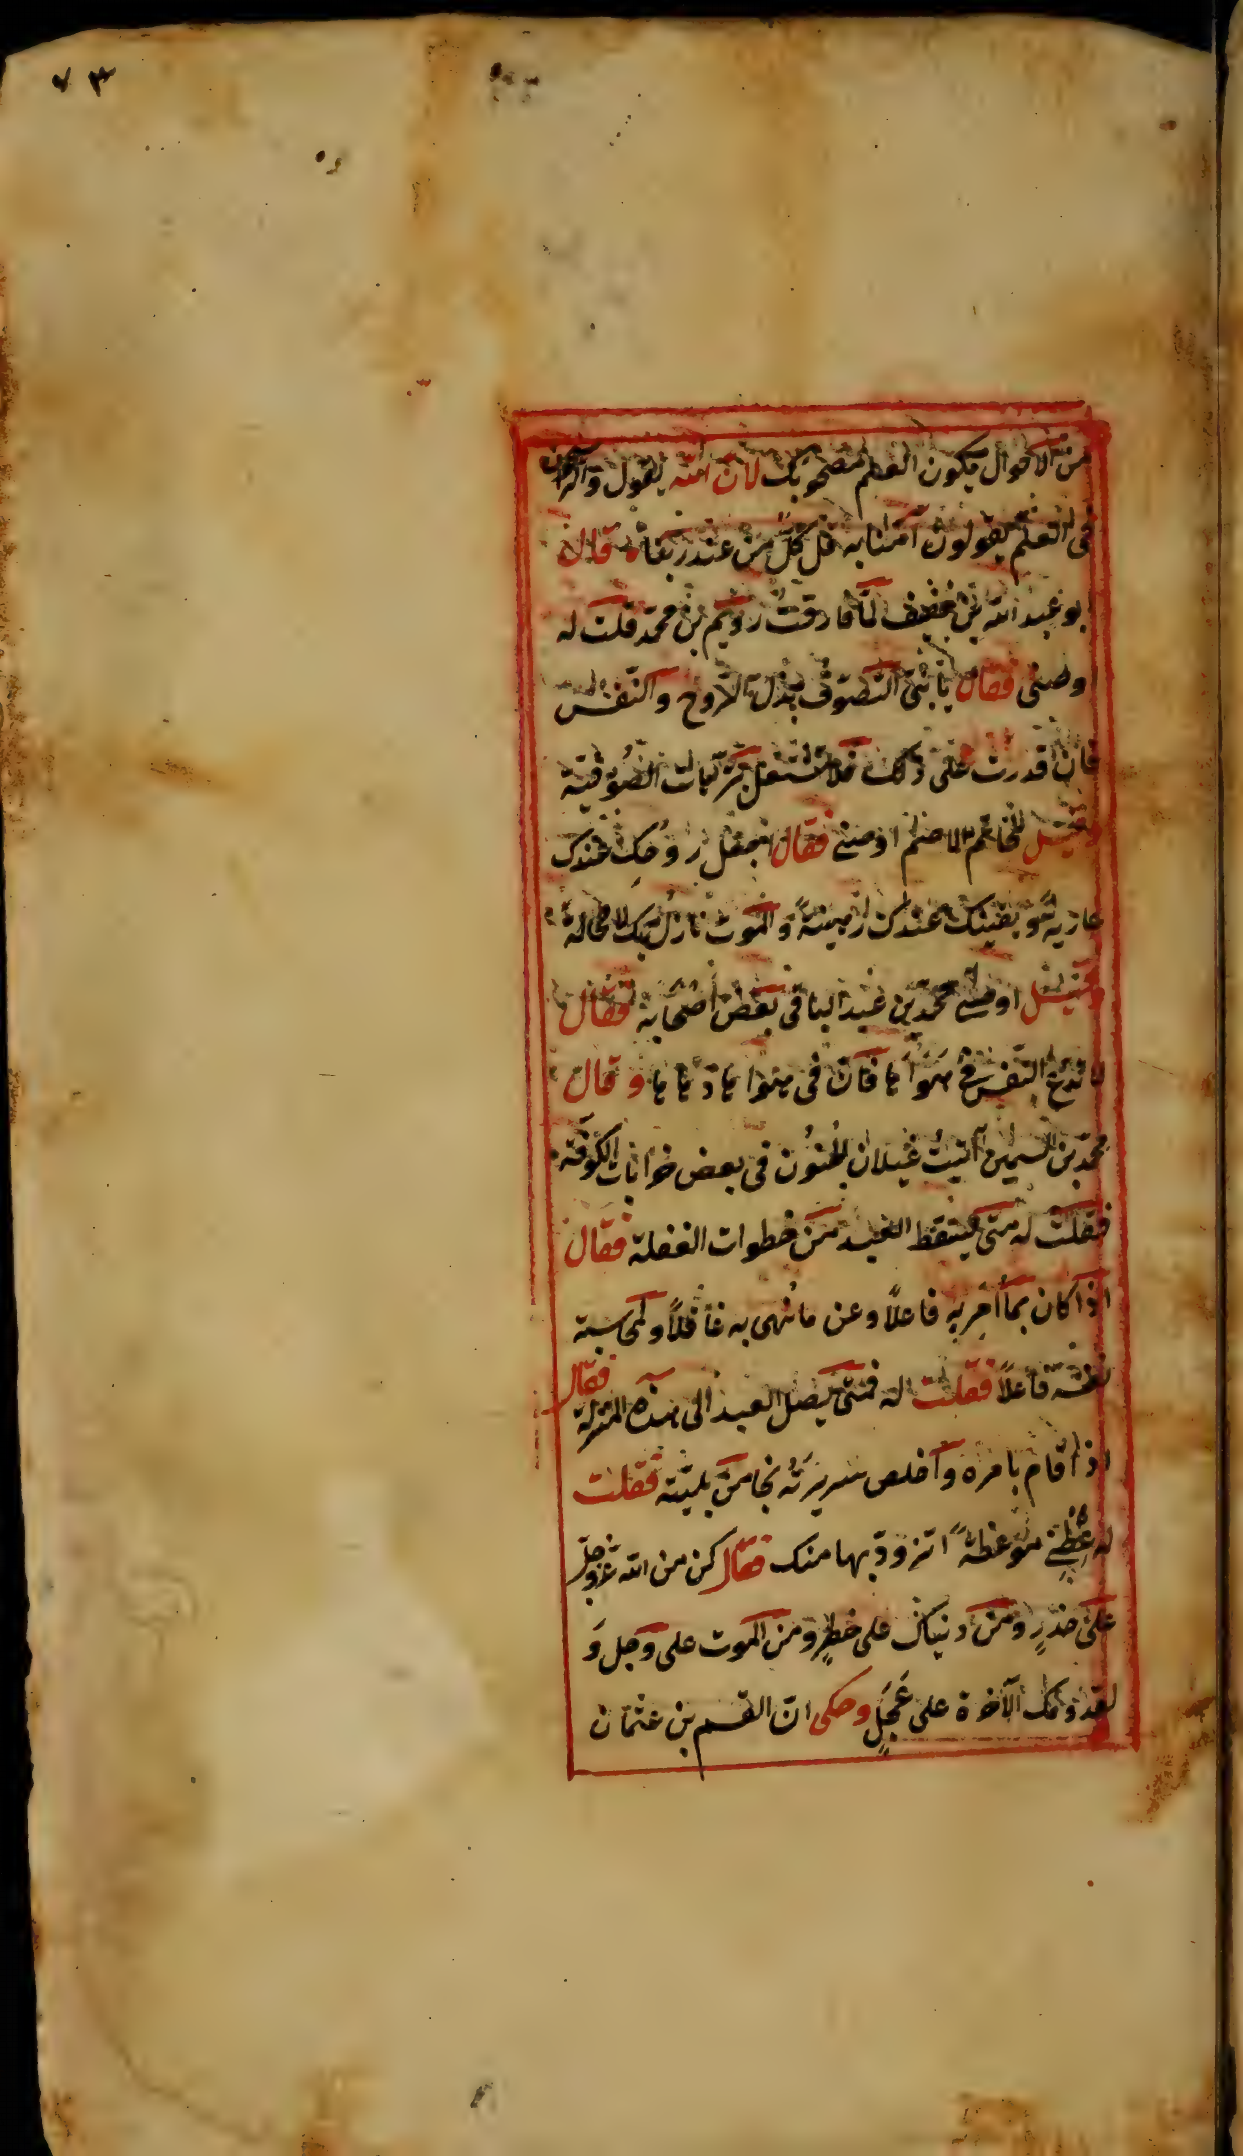 ٧٣
من الاحوال يكون العلم مصحوبك لان الله يقول والراسخون
فى العلم يقولون آمنا به قل كل من عند ربنا قال
بو عبد الله بن خفيف لما فارقت رويم بن محمد قلت له
اوصنى فقال يا بنى التصوف بذل الروح والنفس
فان قدرت على ذلك فلا تشتغل بترهات الصوفية
وقيل لحاتم الاصم اوصنى فقال اجعل روحك عندك
عارية ويقينك عندك رهينة والموت نازل بك لا محالة
وقيل اوصى محمد بن عبد الباقى بعض اصحابه فقال
لا تدع النفس فى هواها فان فى هواها رداها وقال
محمد بن السمين اتيت غيلان المجنون فى بعض خرابات الكوفة
فقلت له متى يستيقظ العبد من خطوات الغفلة فقال
اذا كان بما امر به فاعلا وعن ما نهى به غافلا وبمحاسبة
نفسه فاعلا فقلت له فمتى يصل العبد الى هذه المنزلة فقال
اذا قام بامره واخلص سريرته نجا من بليته فقلت
له عظنى موعظة اتزود بها منك فقال كن من الله عز وجل
على حذر ومن دنياك على خطر ومن الموت على وجل و
لقدومك الآخرة على عجل وحكى ان القسم بن عثمان